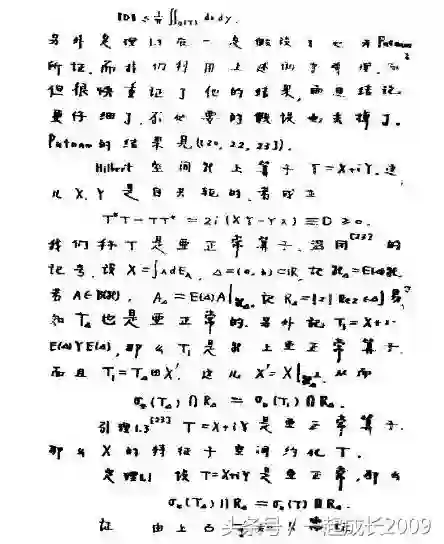 ‖D‖ ≤ 1/π ∬σ(T) dxdy.
另外定理1.1在一定假设下也为Putnam
所证.而我们利用上述的
但很快重证了他的结果,而且结论
更仔细了,不必要的假设也去掉了.
Putnam的结果是([20, 22, 23]).
Hilbert空间ℋ上算子 T=X+iY,这
儿X,Y是自共轭的,若成立
T*T-TT* = 2i(XY-YX) ≡ D ≥ 0.
我们称T是亚正常算子.沿用[23]的
记号,设 X=∫λdE_λ, Δ=(a,b)⊂ℝ,记ℋ_Δ=E(Δ)ℋ,
若A∈B(ℋ), A_Δ=E(Δ)A|ℋ_Δ.记R_Δ={z|Rez∈Δ}易
知T_Δ也是亚正常的.另外记T₁=X+i·
E(Δ)YE(Δ),那么T₁是ℋ上亚正常算子.
而且T₁=T_Δ⊕X'.这儿X'=X|从而
(T_Δ)∩R_Δ = (T₁)∩R_Δ.
引理1.3[23] T=X+iY是亚正常算子.
那么X的特征子空间约化T.
定理1.1 设T=X+iY是亚正常,那么
(T_Δ)∩R_Δ = (T)∩R_Δ.
证 由上
头条号/一起成长2009